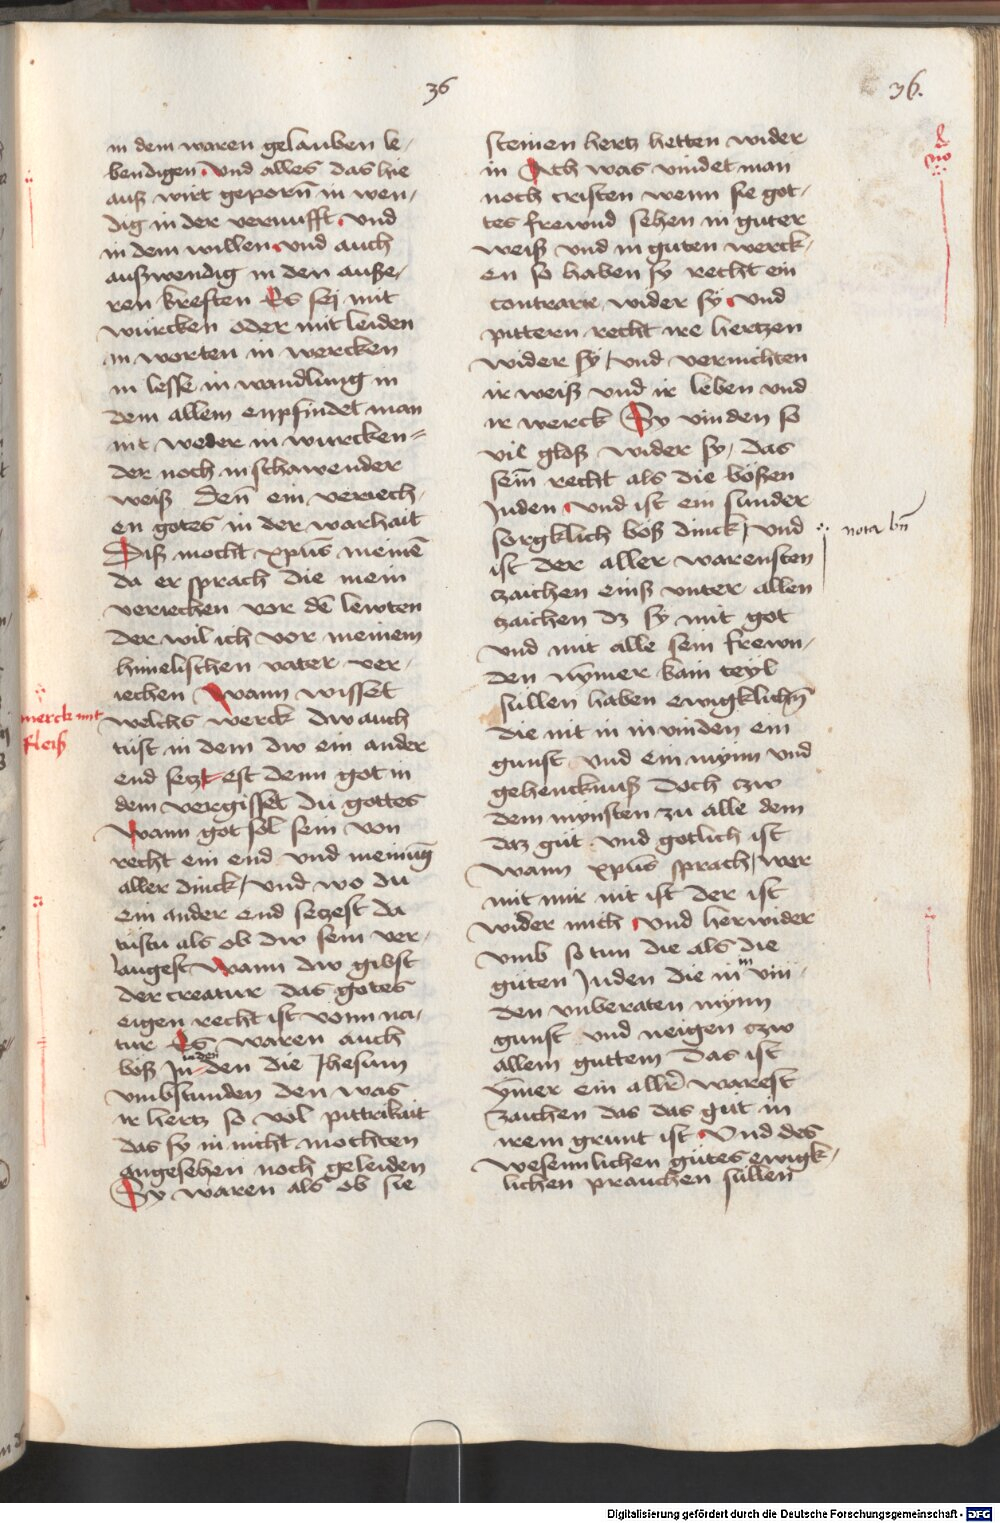 36
36.
in dem waren gelauben le-
bendigen Vnd alles das hie
auß wirt geporn̄ in wen-
dig in der vernufft Vnd
in dem willen vnd auch
außwendig in den auße-
ren kreften Es sej mit
würcken oder mit leiden
in worten in wercken
in lesse in wandlung in
dem allem enpfindet man
nit weder in wurcken=
der noch in schawender
weiß Den̄ ein veriech-
en gotes in der warhait
Diß mocht xp̄us meinē
da er sprach die mein
veriechen vor dē lewten
der wil ich vor meinem
himelischen vater ver-
iechen Wann wisset
welchs werck dw auch
tüst in dem dw ein ander
end seczt est denn got in
dem vergisset du gottes
Wann got sol sein von
recht ein end vnd meinūg
aller dinck/ vnd wo du
ein ander end seczest da
tüstu als ob dw sein ver-
laugest Wann dw gibst
der creatur das gotes
eigen recht ist vonn na-
tur Es waren auch
böß Ju den die Jhesum
in den
vmbstunden den was
ir hertz so vol pittrikait
das sy in nicht mochten
angesehen noch geleiden
Sy waren als ob sie
merck mit
fleiß
steinen hertz hetten wider
in Ach was vindet man
noch cristen wenn sie got-
tes frewnd sehen in guter
weiß vnd in guten werck-
en so haben sy recht ein
contrarie wider sy Vnd
pittern recht ire hertzen
wider sy/ vnd vernichten
ir weiß vnd ir leben vnd
ir werck Sy vinden so
vil gloß wider sy/ das
sein̄ recht als die bößen
Juden Vnd ist ein sunder
sorgklich böß dinck/ vnd
ist der aller warensten
czaichen einß vnter allen
czaichen dz sy mit got
vnd mit alle sein frewn-
den nȳmer kain teyl
süllen haben ewigklichn̄
die nit in in vinden ein
gunst vnd ein mynn vnd
gehencknuß Doch czw
dem mynsten zu alle dem
daz güt vnd gotlich ist
Wann xp̄us sprach/ wer
mit mir nit ist der ist
wider mich Vnd herwider
vmb so tun die als die
güten Juden die in vin-
in
den vnberaten mynn
gunst vnd neigen czw
allem guttem Das ist
ȳmer ein allr̄ warest
zaichen das das güt in
irem grunt ist Vnd des
wesennlichen gütes ewigk-
lichen prauchen süllen
nota bn̄
Digitalisierung gefördert durch die Deutsche Forschungsgemeinschaft - DFG